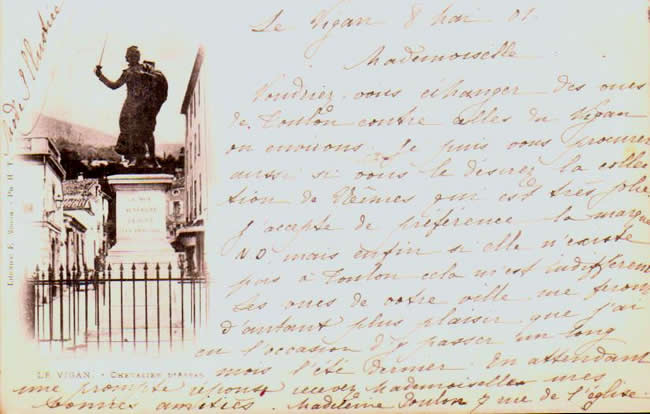 Le Vigan 8 Mai 01.
Mademoiselle
Voudriez vous échanger des vues
de Toulon contre celles du Vigan
ou environs. Je puis vous procurer
aussi si vous le désirez la collec
tion de Nîmes qui est très jolie.
J'accepte de préférence la marque
N D. mais enfin si elle n'existe
pas à Toulon cela m'est indifférent
Les vues de votre ville me feront
d'autant plus plaisir que j'ai
eu l'occasion d'y passer un long
mois l'été dernier. En attendant
une prompte réponse recevez Mademoiselle mes
bonnes amitiés. Madeleine 7 rue de l'église.
LE VIGAN. - CHEVALIER D'ASSAS